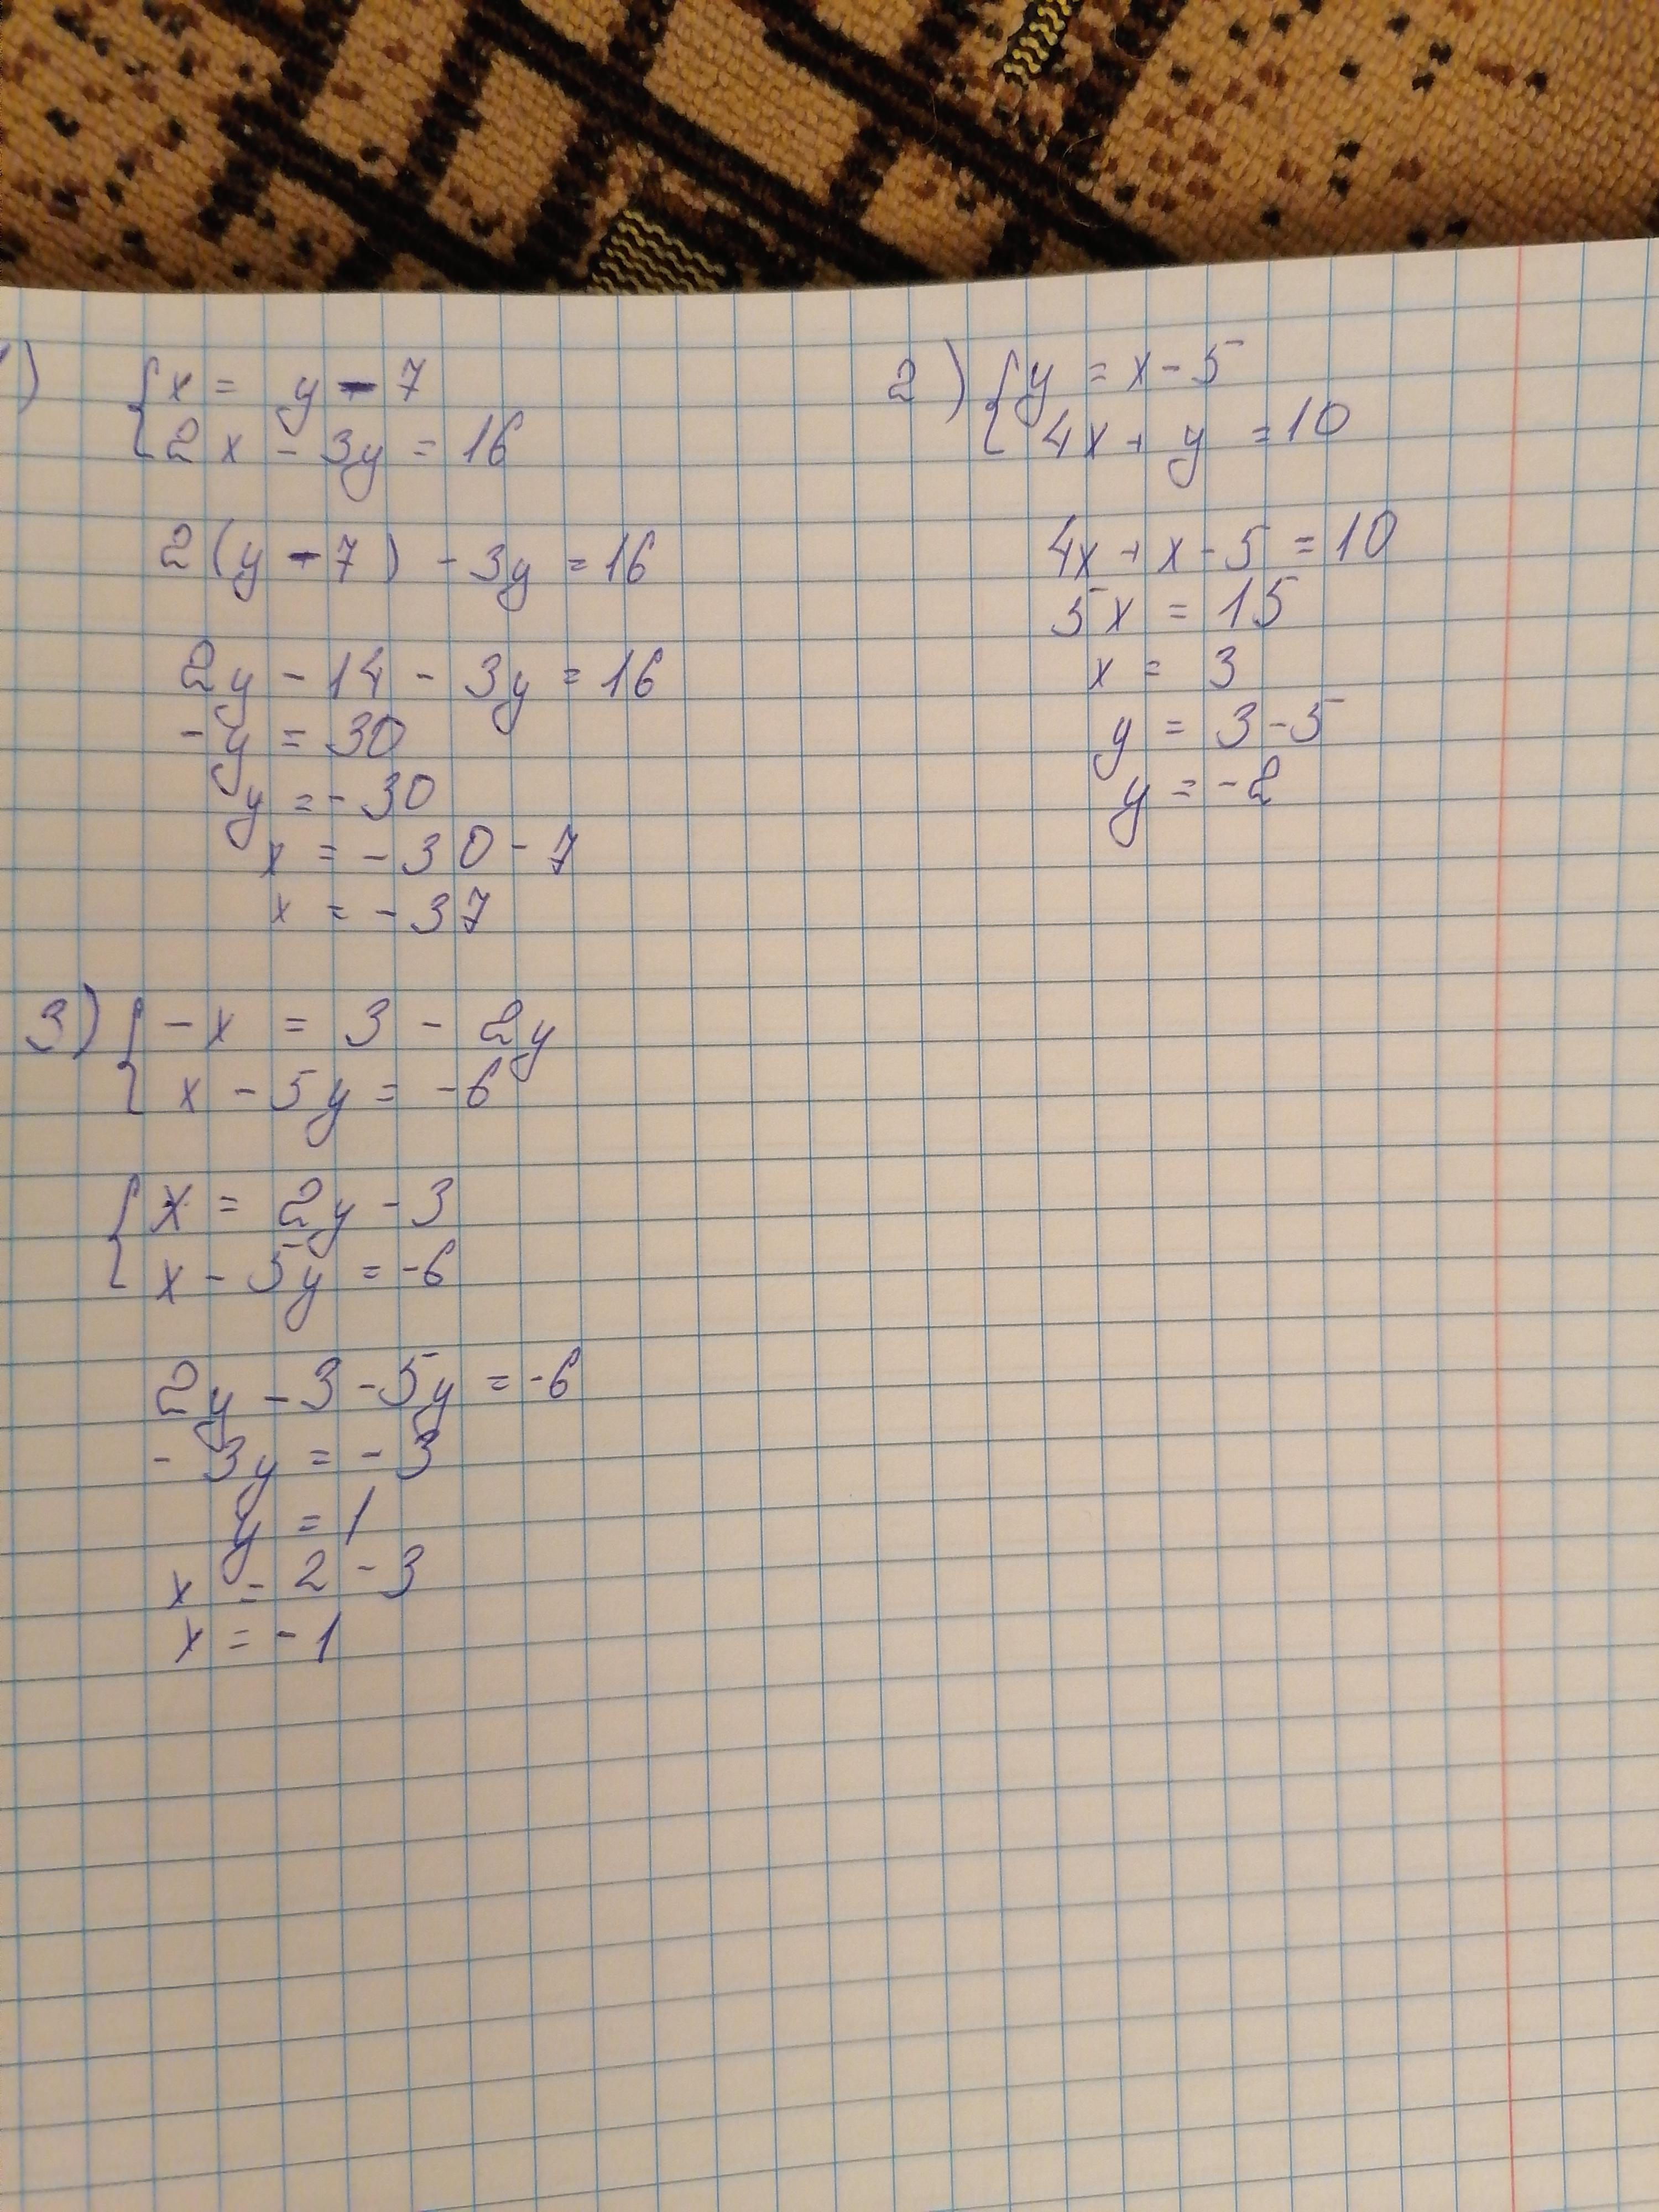 1)
{ x = y - 7
2x - 3y = 16
2(y - 7) - 3y = 16
2y - 14 - 3y = 16
-y = 30
y = -30
x = -30 - 7
x = -37
2) { y = x - 5
4x + y = 10
4x + x - 5 = 10
5x = 15
x = 3
y = 3 - 5
y = -2
3) { -x = 3 - 2y
x - 5y = -6
{ x = 2y - 3
x - 5y = -6
2y - 3 - 5y = -6
-3y = -3
y = 1
x = 2 - 3
x = -1